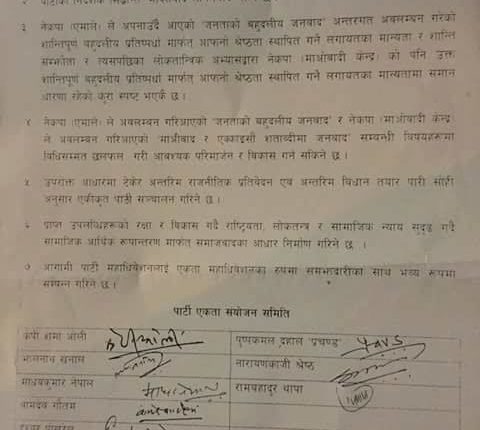 २ पार्टीको निर्देशक सिद्धान्त
३ नेकपा (एमाले) ले अपनाउँदै आएको 'जनताको बहुदलीय जनवाद' अन्तरगत अवलम्बन गरेको
शान्तिपूर्ण बहुदलीय प्रतिष्पर्धा मार्फत आफनो श्रेष्ठता स्थापित गर्ने लगायतका मान्यता र शान्ति
सम्झौता र त्यसपछिका लोकतान्त्रिक अभ्यासद्वारा नेकपा (माओवादी केन्द्र) को पनि उक्त
शान्तिपूर्ण बहुदलीय प्रतिष्पर्धा मार्फत आफनो श्रेष्ठता स्थापित गर्ने लगायतका मान्यतामा समान
धारणा रहेको कुरा स्पष्ट भएकै छ ।
४ नेकपा (एमाले) ले अवलम्बन गरिआएको 'जनताको बहुदलीय जनवाद' र नेकपा (माओवादी केन्द्र)
ले अवलम्बन गरिआएको 'माओवाद र एक्काइसौं शताब्दीमा जनवाद' सम्बन्धी विषयहरूमा
विधिसम्मत छलफल गरी आवश्यक परिमार्जन र विकास गर्न सकिने छ ।
५ उपरोक्त आधारमा टेकेर अन्तरिम राजनीतिक प्रतिवेदन एवं अन्तरिम विधान तयार पारी सोही
अनुसार एकीकृत पार्टी सञ्चालन गरिने छ ।
६ प्राप्त उपलब्धिहरूको रक्षा र विकास गर्दै राष्ट्रियता, लोकतन्त्र र सामाजिक न्याय सुदृढ गर्दै
सामाजिक आर्थिक रूपान्तरण मार्फत समाजवादका आधार निर्माण गरिने छ ।
७ आगामी पार्टी महाधिवेशनलाई एकता महाधिवेशनका रुपमा समझदारीका साथ भव्य रूपमा
सम्पन्न गरिने छ ।
पार्टी एकता संयोजन समिति
केपी शर्मा ओली
पुष्पकमल दहाल 'प्रचण्ड'
झलनाथ खनाल
नारायणकाजी श्रेष्ठ
माधवकुमार नेपाल
रामबहादुर थापा
वामदेव गौतम